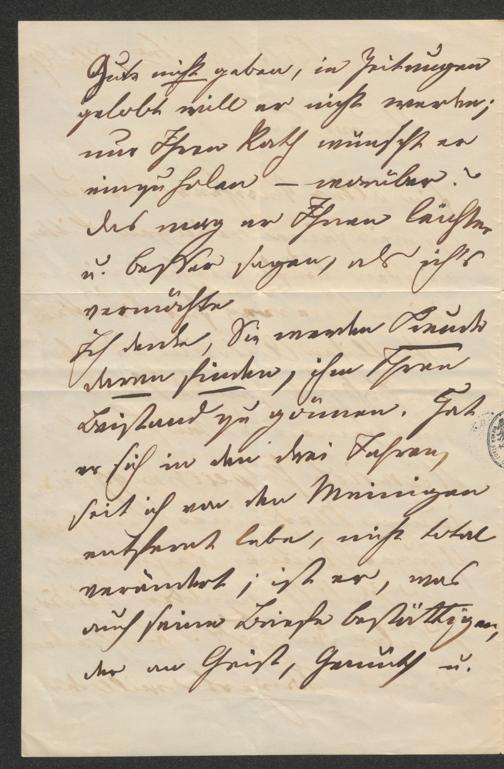 Gute nicht geben, in Zeitungen
gelobt will er nicht werden;
nur Ihren Rath wünscht er
einzuholen – worüber?
das mag er Ihnen leichter
u. besser sagen, als ich's
vermöchte
Ich denke, Sie werden Freude
daran finden, ihm Ihren
Beistand zu gönnen. Hat
er sich in den drei Jahren,
seit ich von den Meinigen
entfernt lebe, nicht total
verändert; ist er, was
auch seine Briefe bestättigen,
der an Geist, Gemüth u.